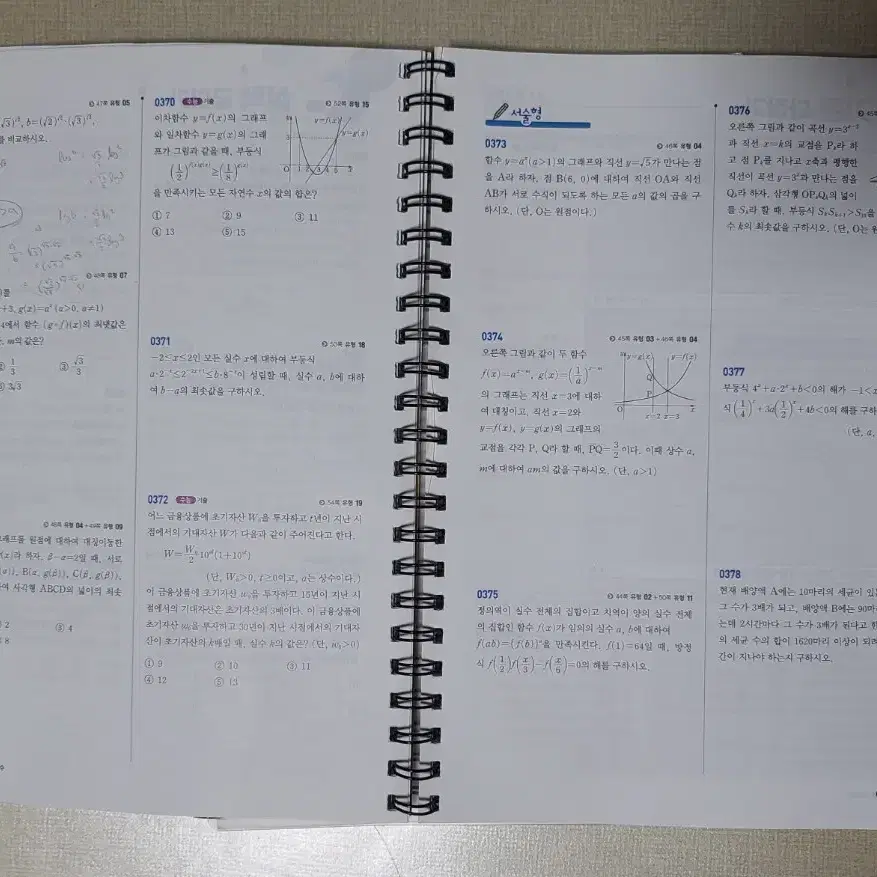 47쪽 유형 05
를 비교하시오.
48쪽 유형 07
+3, g(x)=aˣ (a>0, a≠1)
4에서 함수 (g∘f)(x)의 최댓값은
m의 값은?
② 1/3 ③ √3/3
⑤ 3√3
48쪽 유형 04 + 49쪽 유형 09
래프를 원점에 대하여 대칭이동한
(x)라 하자. β-α=2일 때, 서로
B(α, g(β)), C(β, g(β)),
여 사각형 ABCD의 넓이의 최솟
2 ③ 4
8
0370 수능 기출
52쪽 유형 15
이차함수 y=f(x)의 그래프
와 일차함수 y=g(x)의 그래
프가 그림과 같을 때, 부등식
(1/2)^{f(x)g(x)} ≥ (1/8)^{g(x)}
을 만족시키는 모든 자연수 x의 값의 합은?
① 7 ② 9 ③ 11
④ 13 ⑤ 15
y=f(x)
y=g(x)
0371
53쪽 유형 18
-2≤x≤2인 모든 실수 x에 대하여 부등식
이 성립할 때, 실수 a, b에 대하
여 b-a의 최솟값을 구하시오.
0372 수능 기출
54쪽 유형 19
어느 금융상품에 초기자산 W₀을 투자하고 t년이 지난 시
점에서의 기대자산 W가 다음과 같이 주어진다고 한다.
W=W₀/2 10^{at}(1+10^{at})
(단, W₀>0, t≥0이고, a는 상수이다.)
이 금융상품에 초기자산 w₀을 투자하고 15년이 지난 시
점에서의 기대자산은 초기자산의 3배이다. 이 금융상품에
초기자산 w₀을 투자하고 30년이 지난 시점에서의 기대자
산이 초기자산의 k배일 때, 실수 k의 값은? (단, w₀>0)
① 9 ② 10 ③ 11
④ 12 ⑤ 13
서술형
0373
46쪽 유형 04
함수 y=aˣ(a>1)의 그래프와 직선 y=√5가 만나는 점
을 A라 하자. 점 B(6, 0)에 대하여 직선 OA와 직선
AB가 서로 수직이 되도록 하는 모든 a의 값의 곱을 구
하시오. (단, O는 원점이다.)
0374
45쪽 유형 03 + 46쪽 유형 04
오른쪽 그림과 같이 두 함수
f(x)=a^{x-m}, g(x)=(1/a)^{x-m}
의 그래프는 직선 x=3에 대하
여 대칭이고, 직선 x=2와
y=f(x), y=g(x)의 그래프의
교점을 각각 P, Q라 할 때, PQ=3/2이다. 이때 상수 a,
m에 대하여 am의 값을 구하시오. (단, a>1)
y=g(x) y=f(x)
Q
P
O x=2 x=3 x
0375
44쪽 유형 02 + 50쪽 유형 11
정의역이 실수 전체의 집합이고 치역이 양의 실수 전체
의 집합인 함수 f(x)가 임의의 실수 a, b에 대하여
f(ab)={f(b)}ᵃ을 만족시킨다. f(1)=64일 때, 방정
식 f(1/2)f(x/3)-f(x/6)=0의 해를 구하시오.
0376
오른쪽 그림과 같이 곡선
과 직선 x=k의 교점을 Pₖ라 하
고 점 Pₖ를 지나고 x축과 평행한
직선이 곡선 y=3ˣ과 만나는 점을
Qₖ라 하자. 삼각형 OPₖQₖ의 넓이
를 Sₖ라 할 때, 부등식
수 k의 최솟값을 구하시오. (단, O는 원
0377
부등식 4ˣ+a·2ˣ+b<0의 해가 -1<x
식 (1/4)ˣ+3a(1/2)ˣ+4b<0의 해를 구하
(단, a,
0378
현재 배양액 A에는 10마리의 세균이 있
그 수가 3배가 되고, 배양액 B에는 90마
는데 2시간마다 그 수가 3배가 된다고 한
의 세균 수의 합이 1620마리 이상이 되려
간이 지나야 하는지 구하시오.